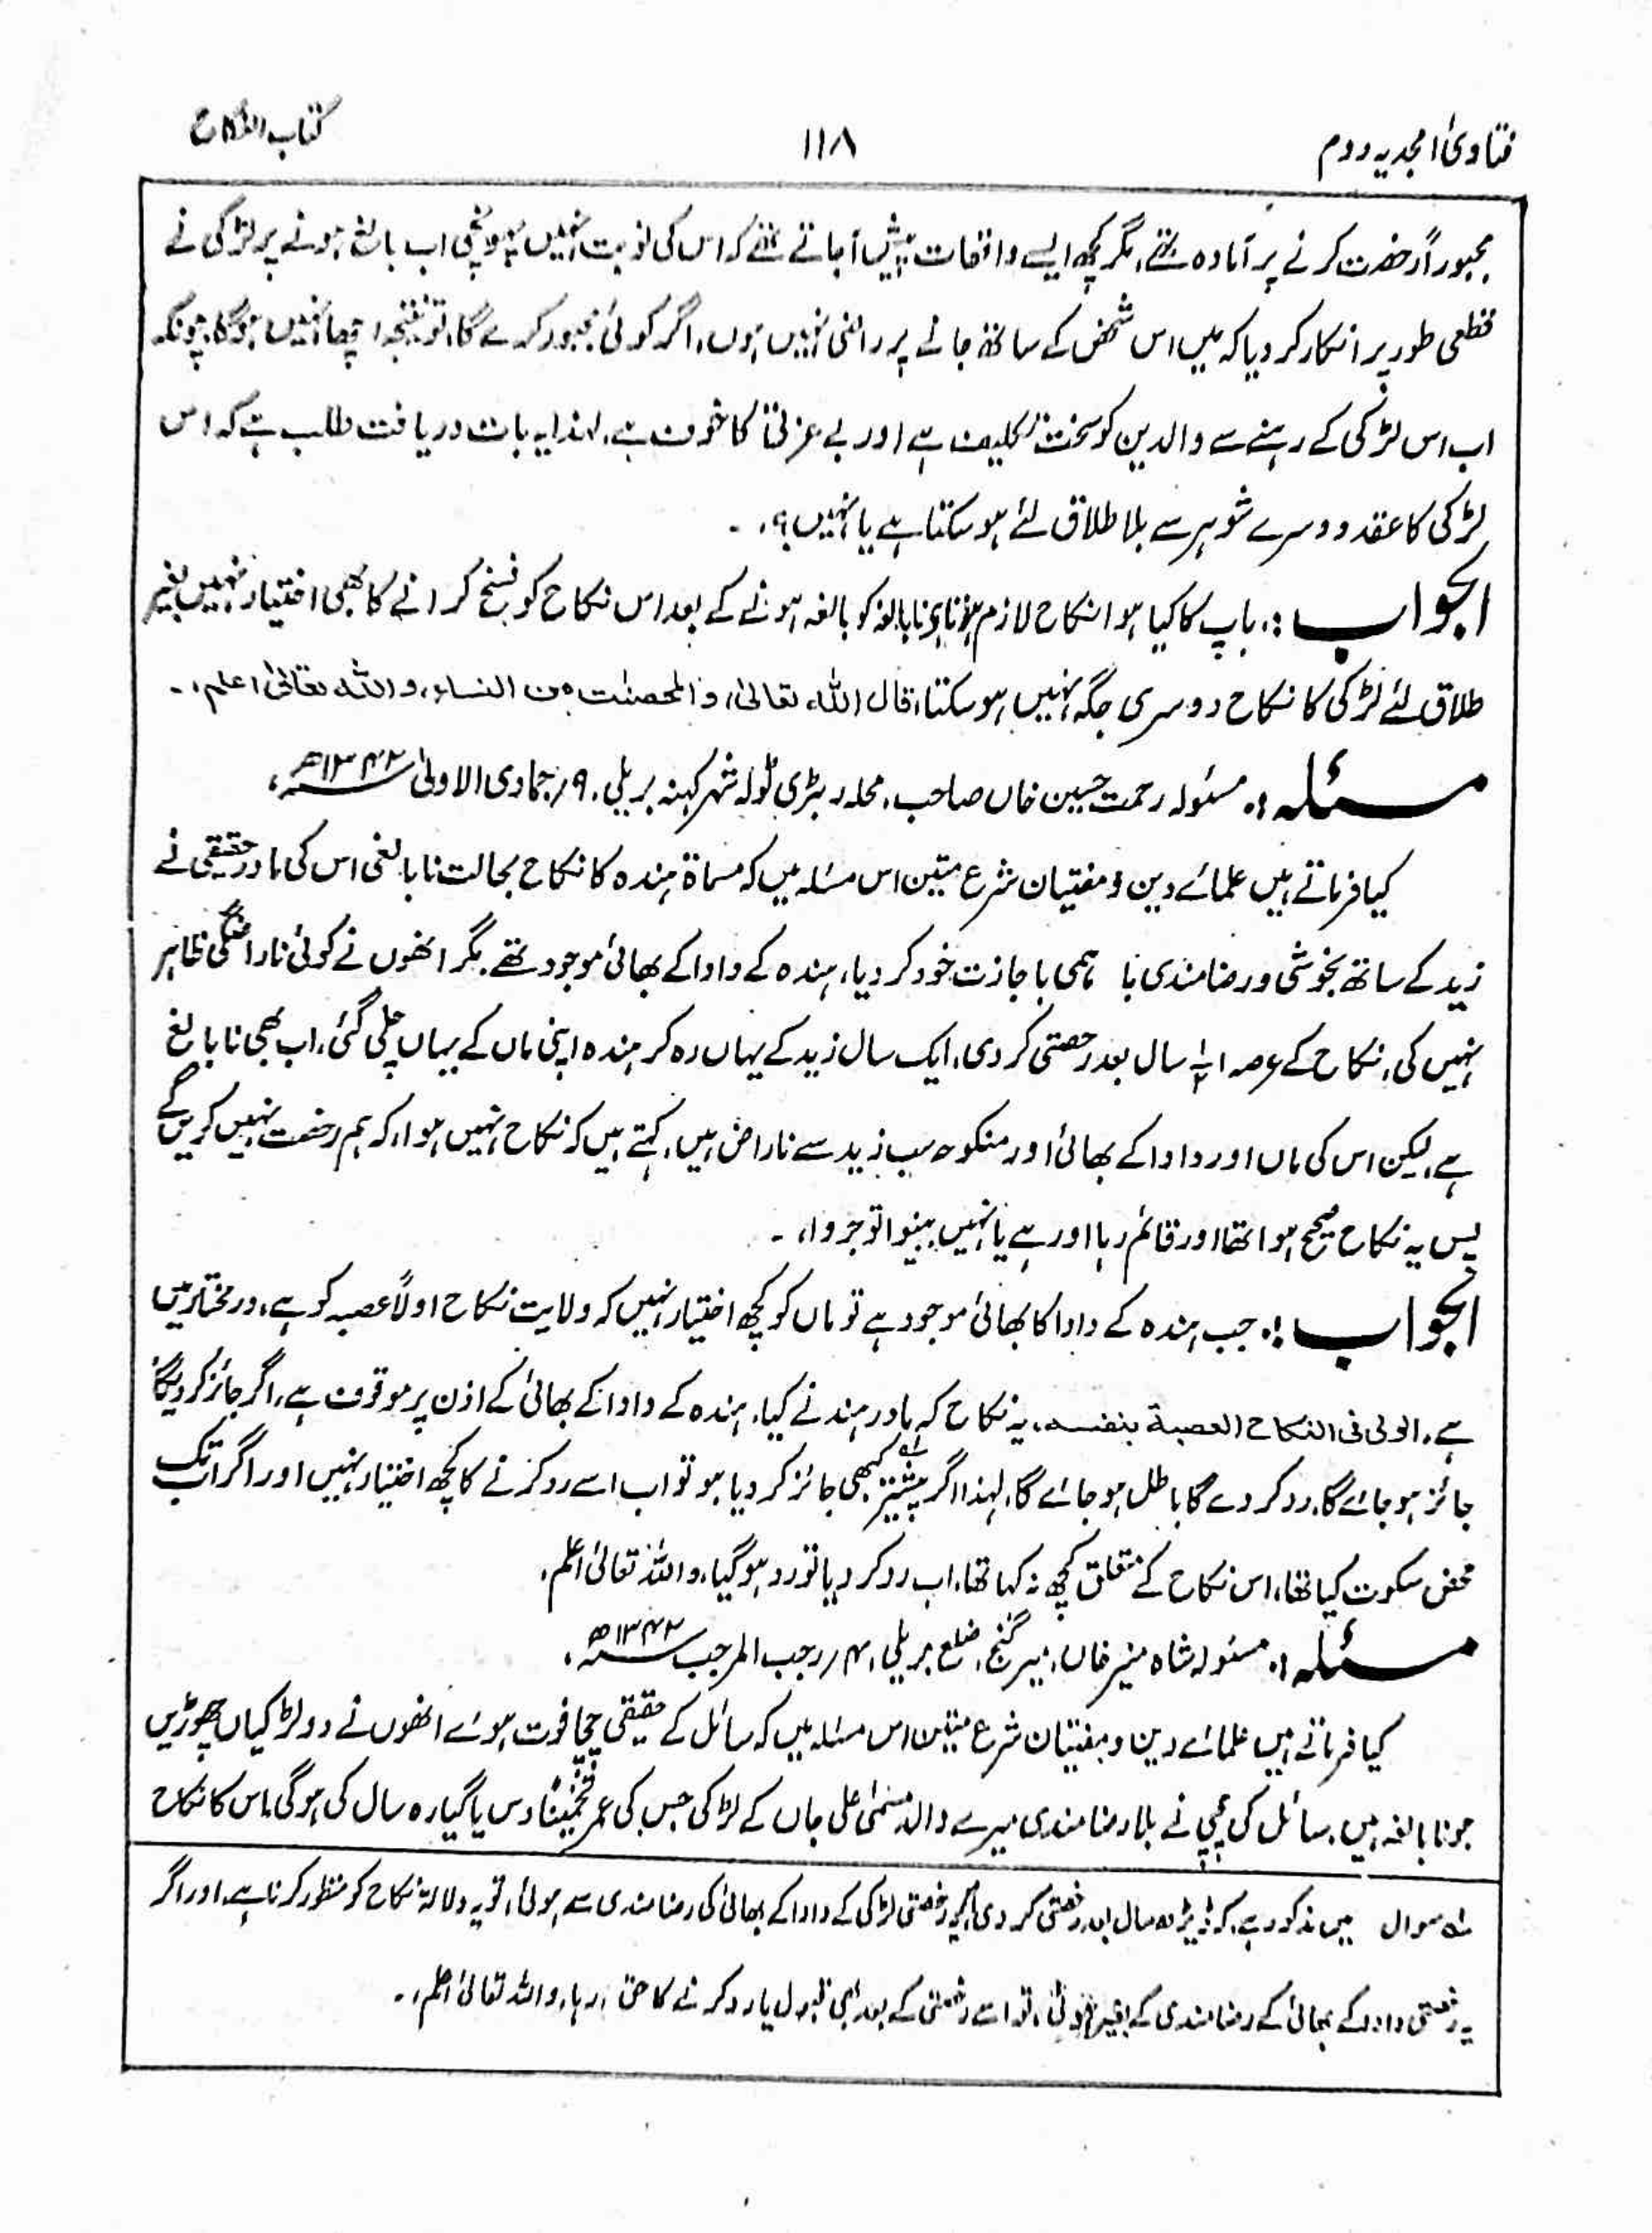 فتاویٰ امجدیہ دوم
۱۱۸
کتاب النکاح
مجبوراً رخصت کرنے پر آمادہ تھے، مگر کچھ ایسے واقعات پیش آجاتے تھے کہ اس کی نوبت نہیں پہونچی اب بالغ ہونے پر لڑکی نے
قطعی طور پر انکار کر دیا کہ میں اس شخص کے ساتھ جانے پر راضی نہیں ہوں، اگر کوئی مجبور کرے گا، تو نتیجہ اچھا نہیں ہوگا، چونکہ
اب اس لڑکی کے رہنے سے والدین کو سخت تکلیف ہے اور بے عزتی کا خوف ہے، لہٰذا یہ بات دریافت طلب ہے کہ اس
لڑکی کا عقد دوسرے شوہر سے بلا طلاق لئے ہو سکتا ہے یا نہیں؟۔
الجواب :۔ باپ کا کیا ہوا نکاح لازم ہوتا ہے نابالغہ کو بالغہ ہونے کے بعد اس نکاح کو فسخ کرانے کا بھی اختیار نہیں بغیر
طلاق لئے لڑکی کا نکاح دوسری جگہ نہیں ہو سکتا، قال اللہ تعالیٰ، والمحصنٰت من النساء، واللہ تعالیٰ اعلم۔
مسئلہ :۔ مسئولہ رحمت حسین خاں صاحب، محلہ ربڑی ٹولہ شہر کہنہ بریلی، ۹؍ جمادی الاولیٰ ۱۳۴۲ھ،
کیا فرماتے ہیں علمائے دین و مفتیان شرع متین اس مسئلہ میں کہ مسماۃ ہندہ کا نکاح بحالت نابالغی اس کی مادر حقیقی نے
زید کے ساتھ بخوشی و رضامندی باہمی باجازت خود کر دیا، ہندہ کے دادا کے بھائی موجود تھے، مگر انھوں نے کوئی ناراضگی ظاہر
نہیں کی، نکاح کے عرصہ ۱½ سال بعد رخصتی کر دی، ایک سال زید کے یہاں رہ کر ہندہ اپنی ماں کے یہاں چلی گئی، اب بھی نابالغ
ہے، لیکن اس کی ماں اور دادا کے بھائی اور منکوحہ سب زید سے ناراض ہیں، کہتے ہیں کہ نکاح نہیں ہوا، کہ ہم رخصت نہیں کریں گے
پس یہ نکاح صحیح ہوا تھا اور قائم رہا اور ہے یا نہیں بینوا توجروا، ۔
الجواب :۔ جب ہندہ کے دادا کا بھائی موجود ہے تو ماں کو کچھ اختیار نہیں کہ ولایت نکاح اولاً عصبہ کو ہے، در مختار میں
ہے، الولی فی النکاح العصبۃ بنفسہ، یہ نکاح کہ مادر ہند نے کیا، ہندہ کے دادا کے بھائی کے اذن پر موقوف ہے، اگر جائز کر دیگا
جائز ہو جائے گا، رد کر دے گا باطل ہو جائے گا، لہذا اگر پیشتر کبھی جائز کر دیا ہو تو اب اسے رد کرنے کا کچھ اختیار نہیں اور اگر اب تک
محض سکوت کیا تھا، اس نکاح کے متعلق کچھ نہ کہا تھا، اب رد کر دیا تو رد ہو گیا، واللہ تعالیٰ اعلم،
مسئلہ :۔ مسئولہ شاہ منیر خاں، میر گنج، ضلع بریلی، ۴؍ رجب المرجب ۱۳۴۲ھ،
کیا فرماتے ہیں علمائے دین و مفتیان شرع متین اس مسئلہ میں کہ سائل کے حقیقی چچا فوت ہوئے انھوں نے دو لڑکیاں چھوڑیں
جو نابالغہ ہیں، سائل کی چچی نے بلا رضامندی میرے والد مسمّٰی علی جاں کے لڑکی جس کی عمر تخمیناً دس یا گیارہ سال کی ہوگی اس کا نکاح
لہ سوال میں مذکور ہے، کہ ڈیڑھ سال بعد رخصتی کر دی اگر رخصتی لڑکی کے دادا کے بھائی کی رضامندی سے ہوئی، تو یہ دلالۃً نکاح کو منظور کرنا ہے، اور اگر
یہ رخصتی دادا کے بھائی کے رضامندی کے بغیر ہوئی، تو اسے رخصتی کے بعد بھی قبول یا رد کرنے کا حق رہا، واللہ تعالیٰ اعلم،۔